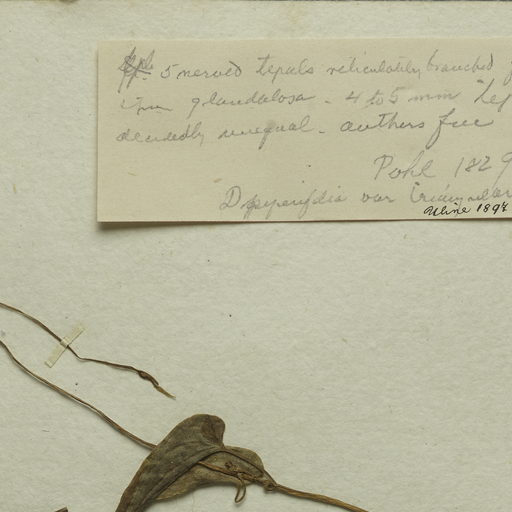 5 nerved tepals reticulately branched
glandulosa - 4 to 5 mm Tep
decidedly unequal - anthers free
Pohl 1829
D piperifolia var
Uline 1897